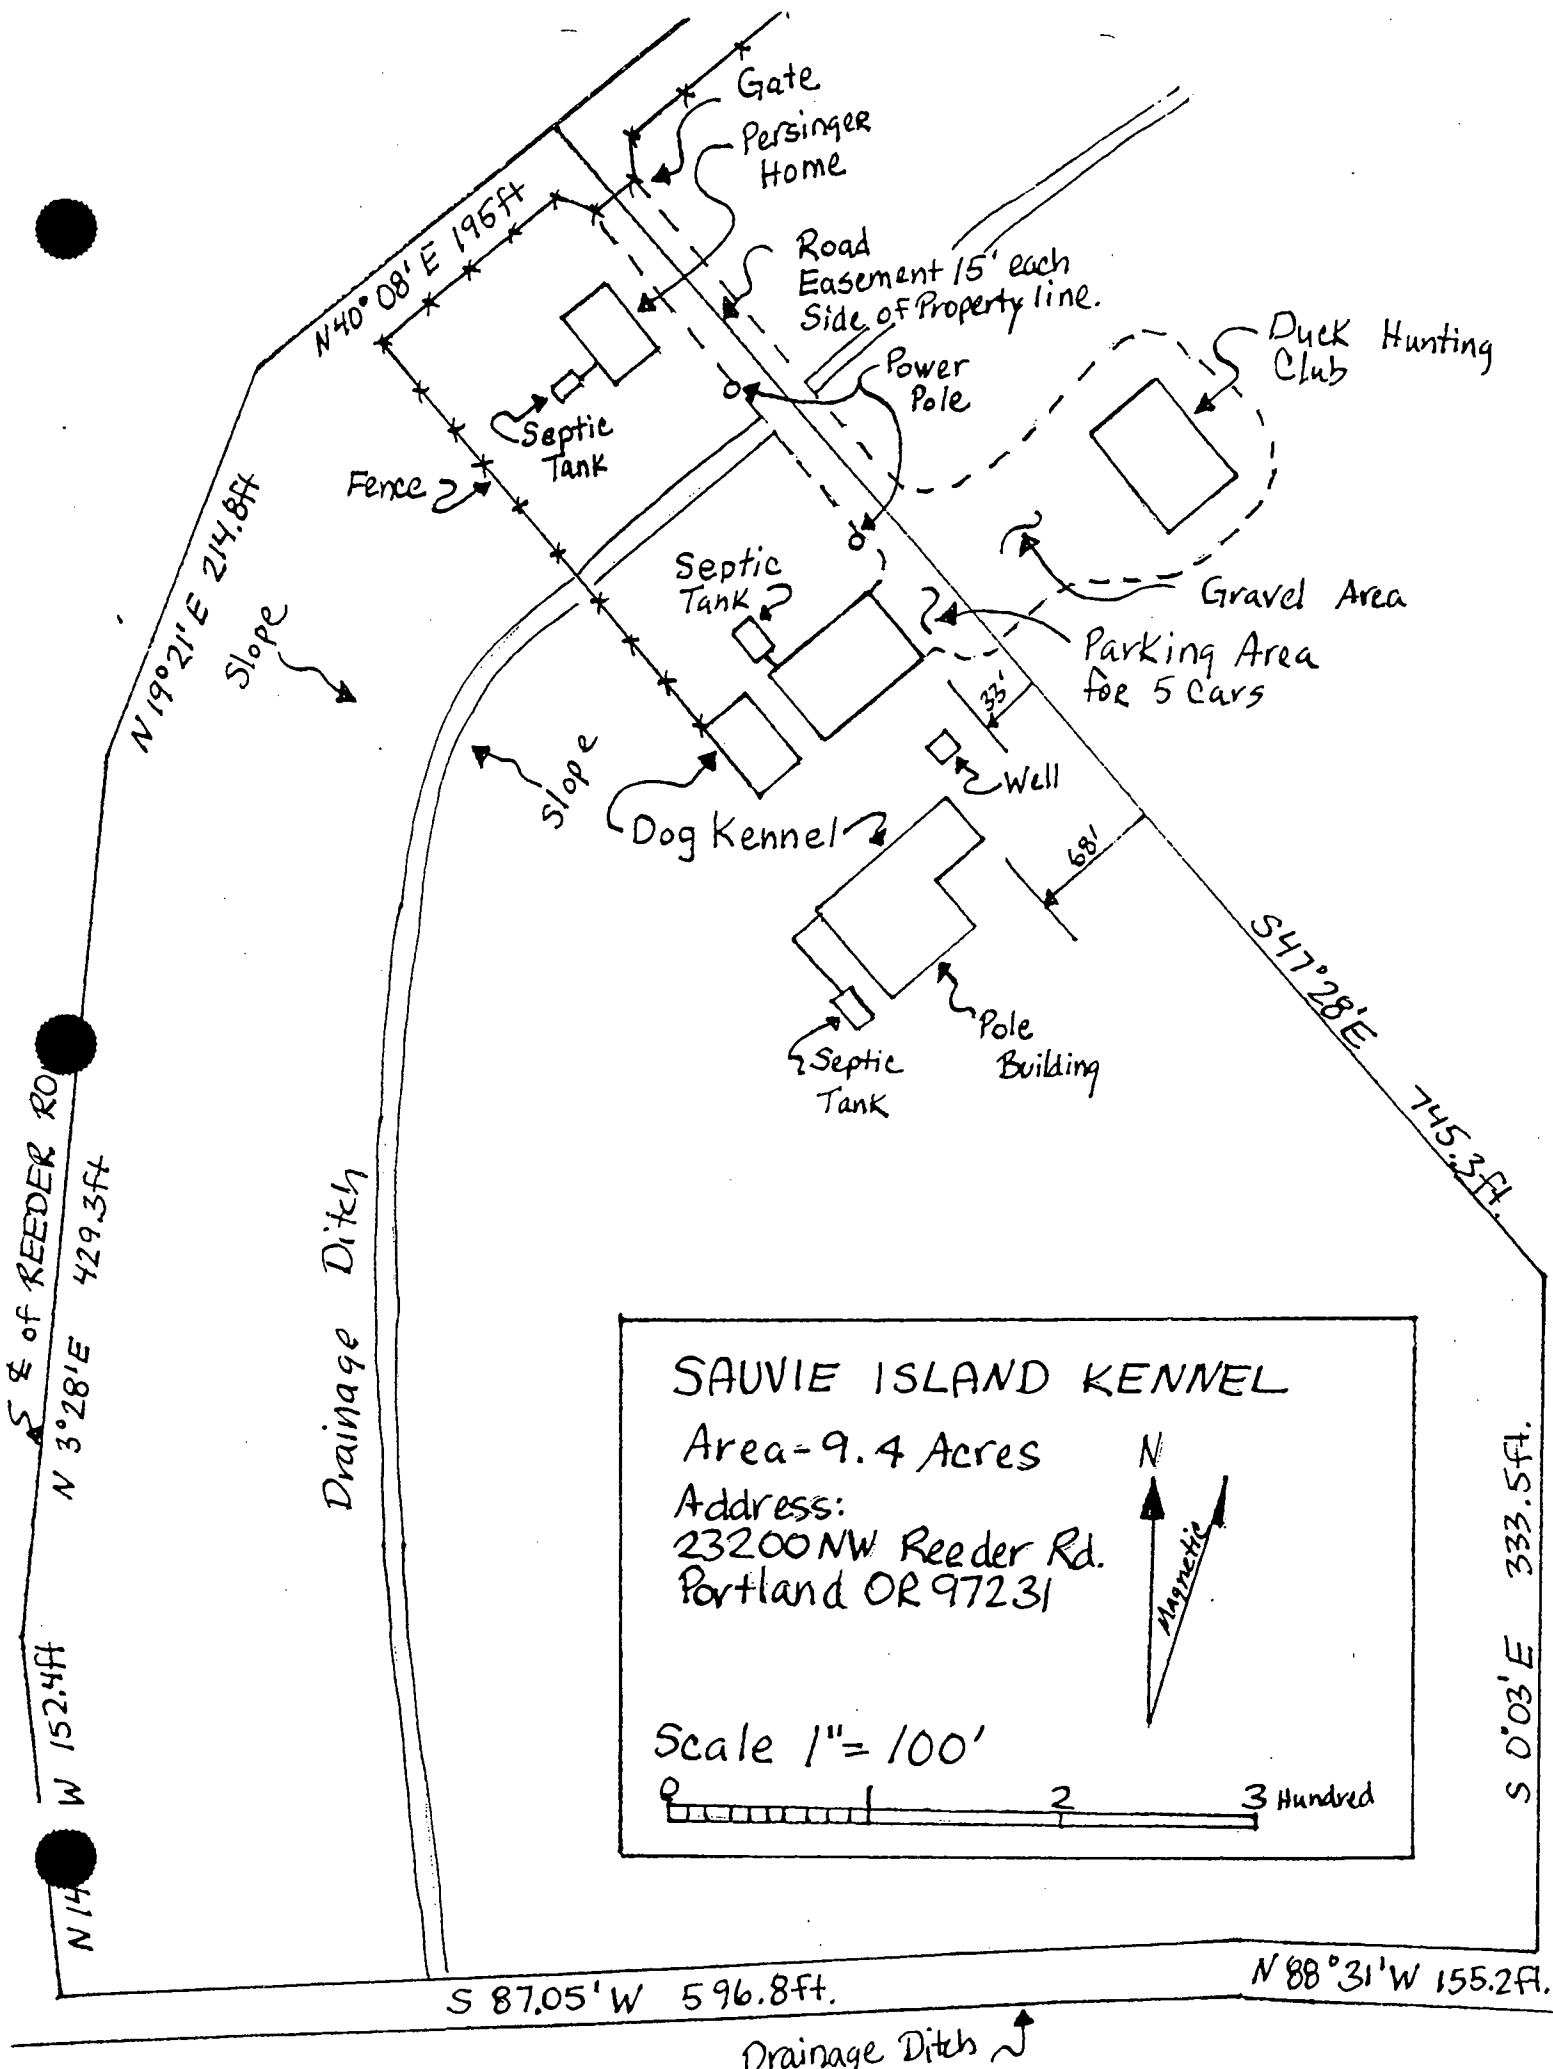 Gate
Persinger
Home
N 40° 08' E 195ft
Road
Easement 15' each
Side of Property line.
Duck Hunting
Club
Power
Pole
Septic
Tank
Fence
N 19° 21' E 214.8ft
Slope
Septic
Tank
Gravel Area
Parking Area
for 5 Cars
33'
Slope
Well
Dog Kennel
68'
S 47° 28' E 745.3ft.
Pole
Building
Septic
Tank
℄ of REEDER RO
N 3° 28' E 429.3ft
Drainage Ditch
SAUVIE ISLAND KENNEL
Area = 9.4 Acres
N
Address:
23200 NW Reeder Rd.
Portland OR 97231
Magnetic
Scale 1" = 100'
0 1 2 3 Hundred
S 0° 03' E 333.5ft.
N 14 W 152.4ft
S 87.05' W 596.8ft.
N 88° 31' W 155.2ft.
Drainage Ditch